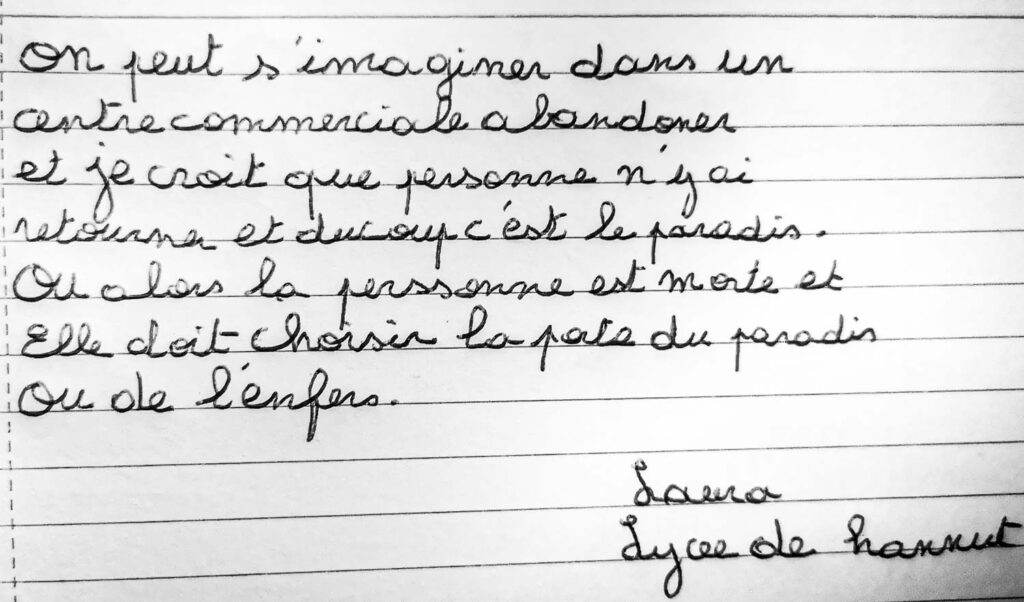 On peut s'imaginer dans un
centre commerciale abandoner
et je croit que personne n'y ai
retourner et ducoup c'est le paradis.
Ou alors la perssonne est morte et
Elle doit choisir la porte du paradis
Ou de l'enfers.
Laura
Lycée de hannut